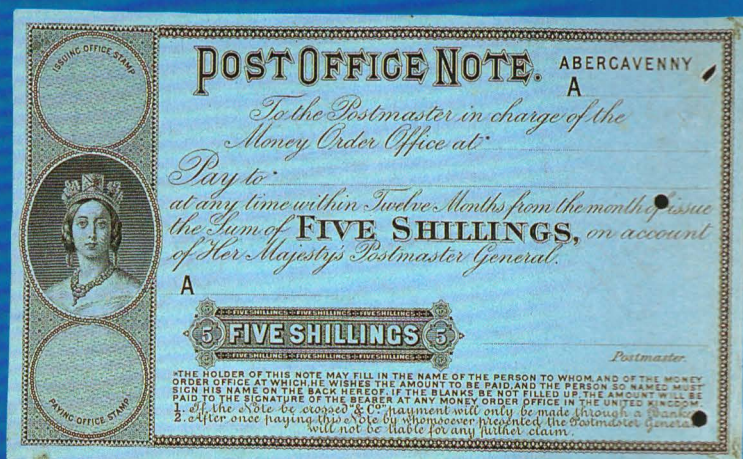 ISSUING OFFICE STAMP
POST OFFICE NOTE.
ABERGAVENNY
A
To the Postmaster in charge of the
Money Order Office at*
Pay to*
at any time within Twelve Months from the month of issue
the Sum of FIVE SHILLINGS, on account
of Her Majesty's Postmaster General.
A
FIVE SHILLINGS FIVE SHILLINGS FIVE SHILLINGS
5 FIVE SHILLINGS 5
FIVE SHILLINGS FIVE SHILLINGS FIVE SHILLINGS
Postmaster.
PAYING OFFICE STAMP
*THE HOLDER OF THIS NOTE MAY FILL IN THE NAME OF THE PERSON TO WHOM, AND OF THE MONEY
ORDER OFFICE AT WHICH, HE WISHES THE AMOUNT TO BE PAID, AND THE PERSON SO NAMED MUST
SIGN HIS NAME ON THE BACK HEREOF. IF THE BLANKS BE NOT FILLED UP, THE AMOUNT WILL BE
PAID TO THE SIGNATURE OF THE BEARER AT ANY MONEY ORDER OFFICE IN THE UNITED KINGDOM.
1. If the Note be crossed "& Co" payment will only be made through a Banker
2. After once paying this Note by whomsoever presented the Postmaster General
will not be liable for any further claim.